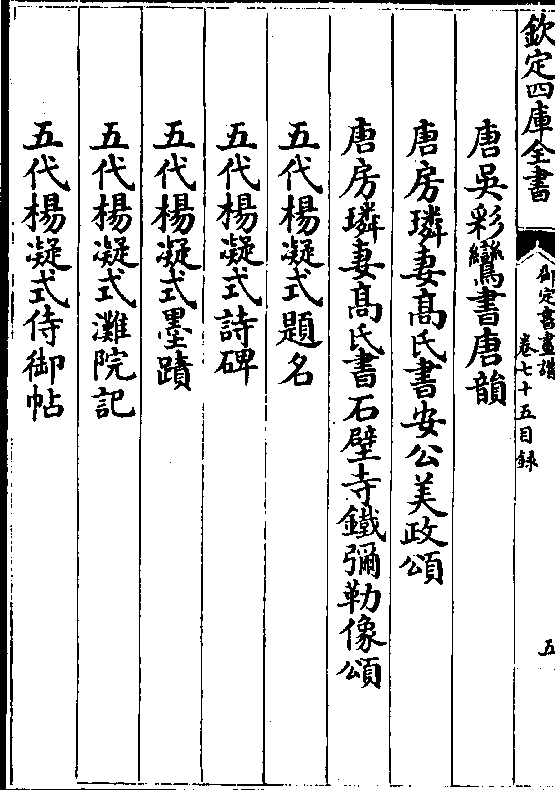 欽定四庫全書
御定書畫譜
卷七十五目録
五
唐吳彩鸞書唐韻
唐房璘妻髙氏書安公美政頌
唐房璘妻髙氏書石壁寺鐵彌勒像頌
五代楊凝式題名
五代楊凝式詩碑
五代楊凝式墨蹟
五代楊凝式灘院記
五代楊凝式侍御帖